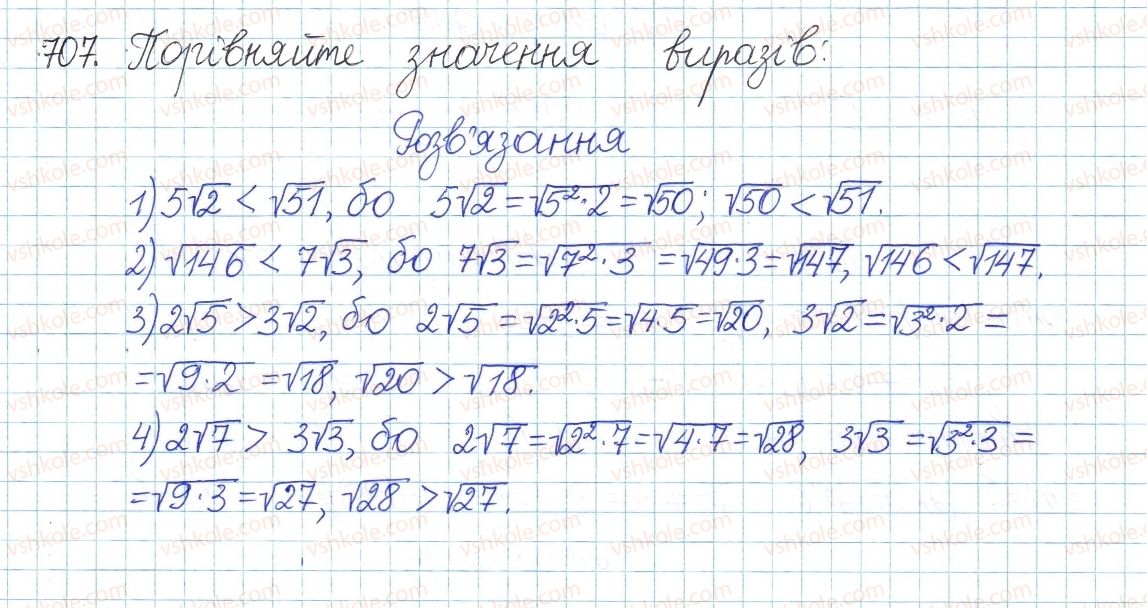 707. Порівняйте значення виразів:
Розв'язання
1) 5√2 < √51, бо 5√2 = √5²·2 = √50; √50 < √51.
2) √146 < 7√3, бо 7√3 = √7²·3 = √49·3 = √147, √146 < √147.
3) 2√5 > 3√2, бо 2√5 = √2²·5 = √4·5 = √20, 3√2 = √3²·2 =
= √9·2 = √18, √20 > √18.
4) 2√7 > 3√3, бо 2√7 = √2²·7 = √4·7 = √28, 3√3 = √3²·3 =
= √9·3 = √27, √28 > √27.